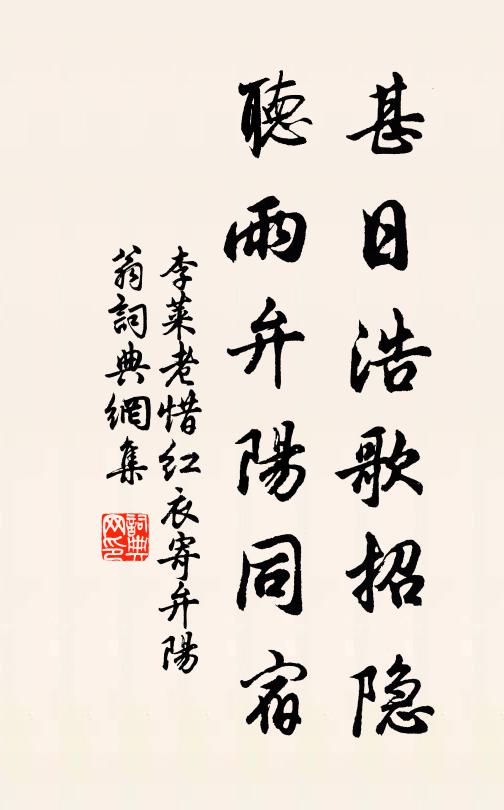 甚日浩歌招隐
聽雨弁陽同宿
李萊老惜红衣寄弁陽
翁詞典網集
詞典
网印